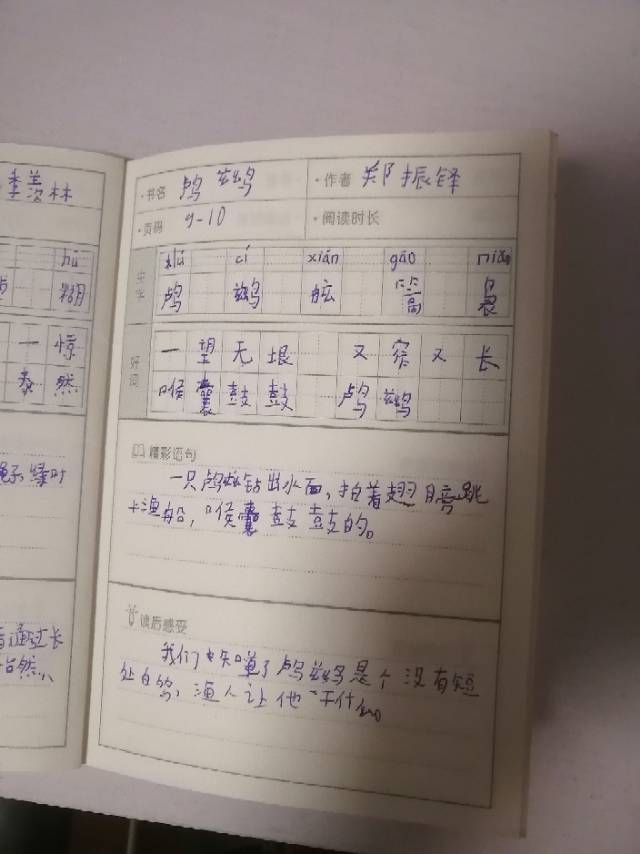 季羡林
hú
糊
一惊
泰然
通过长
·书名 鸬鹚 ·作者 郑振铎
·页码 9-10 ·阅读时长
生字
lú cí xián gāo niǎo
鸬 鹚 舷 篙
好词
一望无垠 又窄又长
喉囊鼓鼓 鸬鹚
精彩语句
一只鸬鹚钻出水面，拍着翅膀跳
上渔船，喉囊鼓鼓的。
读后感受
我们 了鸬鹚是个没有短
处 渔人让他干什么